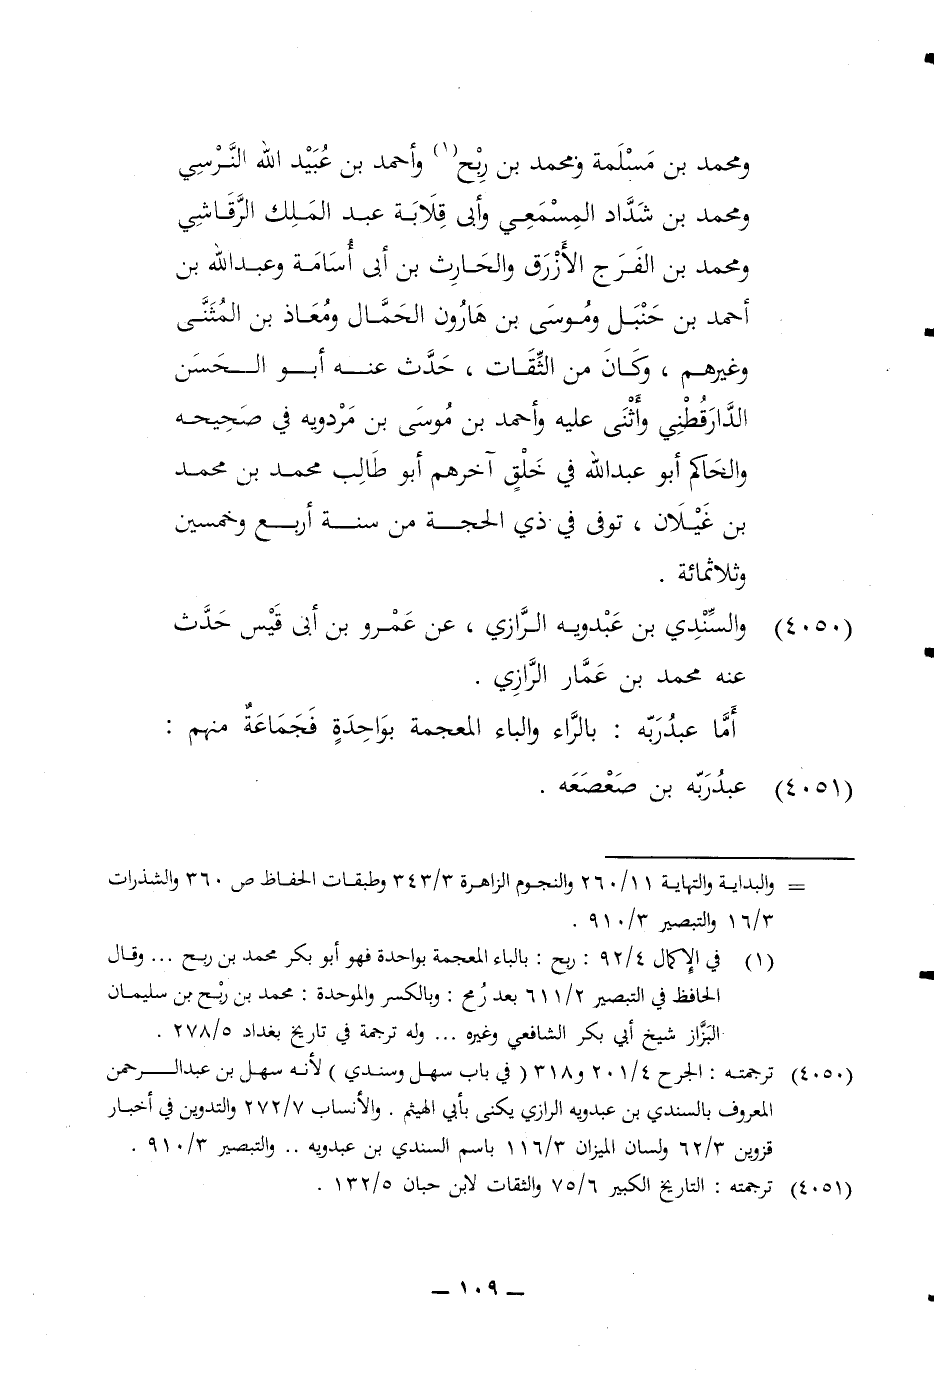 ومحمد بن مَسْلَمة ومحمد بن رِبْح(١) وأحمد بن عُبَيْد الله النَّرْسِي
ومحمد بن شَدَّاد المِسْمَعِي وأبى قِلَابَة عبد المَلِك الرَّقَاشِي
ومحمد بن الفَرَج الأَزْرَق والحَارِث بن أبى أُسَامَة وعبدالله بن
أحمد بن حَنْبَل ومُوسَى بن هَارُون الحَمَّال ومُعَاذ بن المُثَنَّى
وغيرهم ، وكَانَ من الثِّقَات ، حَدَّث عنه أبو الحَسَن
الدَّارَقُطْنِي وأَثْنَى عليه وأحمد بن مُوسَى بن مَرْدويه في صَحِيحه
والحَاكم أبو عبدالله في خَلْقٍ آخرهم أبو طَالِب محمد بن محمد
بن غَيْلَان ، توفى في ذي الحجة من سنة أربع وخمسين
وثلاثمائة .
(٤٠٥٠) والسِّنْدِي بن عَبْدويه الرَّازي ، عن عَمْرو بن أبى قَيْس حَدَّث
عنه محمد بن عَمَّار الرَّازِي .
أَمَّا عبدُرَبّه : بالرَّاء والباء المعجمة بوَاحِدَةٍ فَجَمَاعَةٌ منهم :
(٤٠٥١) عبدُرَبّه بن صَعْصَعَه .
= والبداية والنهاية ٢٦٠/١١ والنجوم الزاهرة ٣٤٣/٣ وطبقات الحفاظ ص ٣٦٠ والشذرات
١٦/٣ والتبصير ٩١٠/٣ .
(١) في الإكمال ٩٢/٤ : ربح : بالباء المعجمة بواحدة فهو أبو بكر محمد بن ربح ... وقال
الحافظ في التبصير ٦١١/٢ بعد رُمح : وبالكسر والموحدة : محمد بن رِبْح بن سليمان
البَزَّاز شيخ أبي بكر الشافعي وغيره ... وله ترجمة في تاريخ بغداد ٢٧٨/٥ .
(٤٠٥٠) ترجمته : الجرح ٢٠١/٤ و٣١٨ ( في باب سهل وسندي ) لأنه سهل بن عبدالرحمن
المعروف بالسندي بن عبدويه الرازي يكنى بأبي الهيثم . والأنساب ٢٧٢/٧ والتدوين في أخبار
قزوين ٦٢/٣ ولسان الميزان ١١٦/٣ باسم السندي بن عبدويه .. والتبصير ٩١٠/٣ .
(٤٠٥١) ترجمته : التاريخ الكبير ٧٥/٦ والثقات لابن حبان ١٣٢/٥ .
ــ ١٠٩ ــ